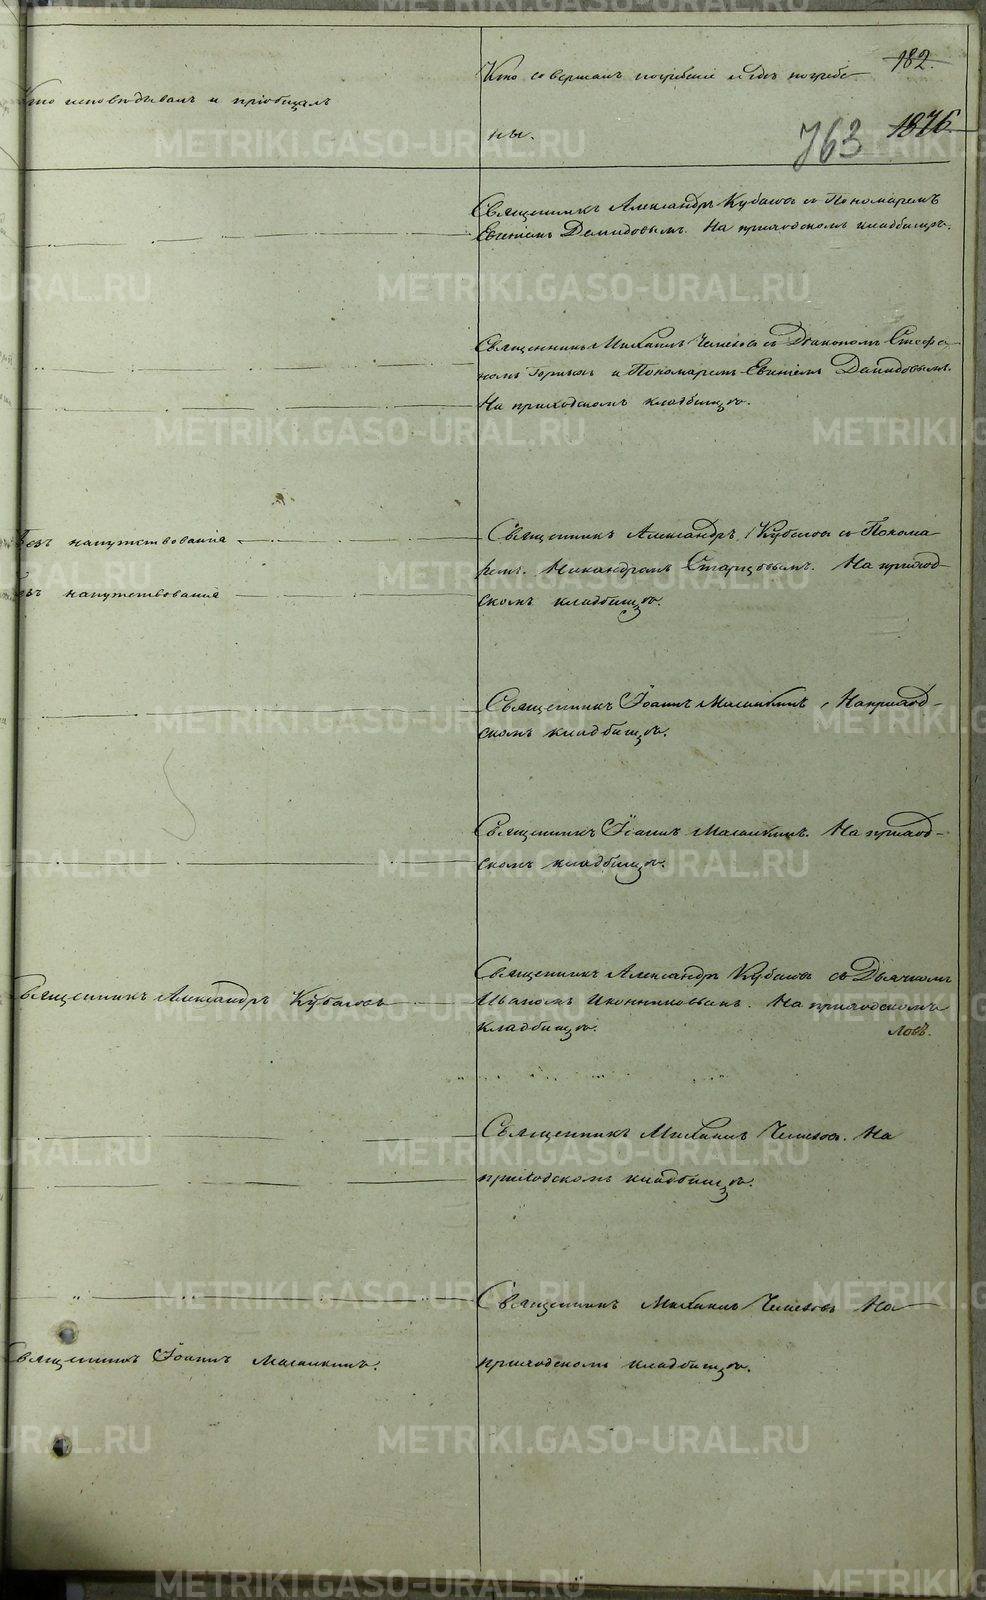 182.
Кто исповѣдывалъ и пріобщалъ
Кто совершалъ погребеніе и гдѣ погребе-
ны.
763 1876
Священникъ Александръ Кубасовъ съ Пономаремъ
Евгеніемъ Демидовымъ. На приходскомъ кладбищѣ.
Священникъ Михаилъ съ Діакономъ Стефа-
номъ и Пономаремъ Евгеніемъ Демидовымъ.
На приходскомъ кладбищѣ.
Безъ напутствованія
Безъ напутствованія
Священникъ Александръ Кубасовъ съ Понома-
ремъ Никандромъ Старцовымъ. На приход-
скомъ кладбищѣ.
Священникъ Іоаннъ На приход-
скомъ кладбищѣ.
Священникъ Іоаннъ На приход-
скомъ кладбищѣ.
Священникъ Александръ Кубасовъ
Священникъ Александръ Кубасовъ съ Дьячкомъ
Иваномъ Иконниковымъ. На приходскомъ
кладбищѣ.
Священникъ Михаилъ На
приходскомъ кладбищѣ.
Священникъ Михаилъ На
Священникъ Іоаннъ
приходскомъ кладбищѣ.
METRIKI.GASO-URAL.RU